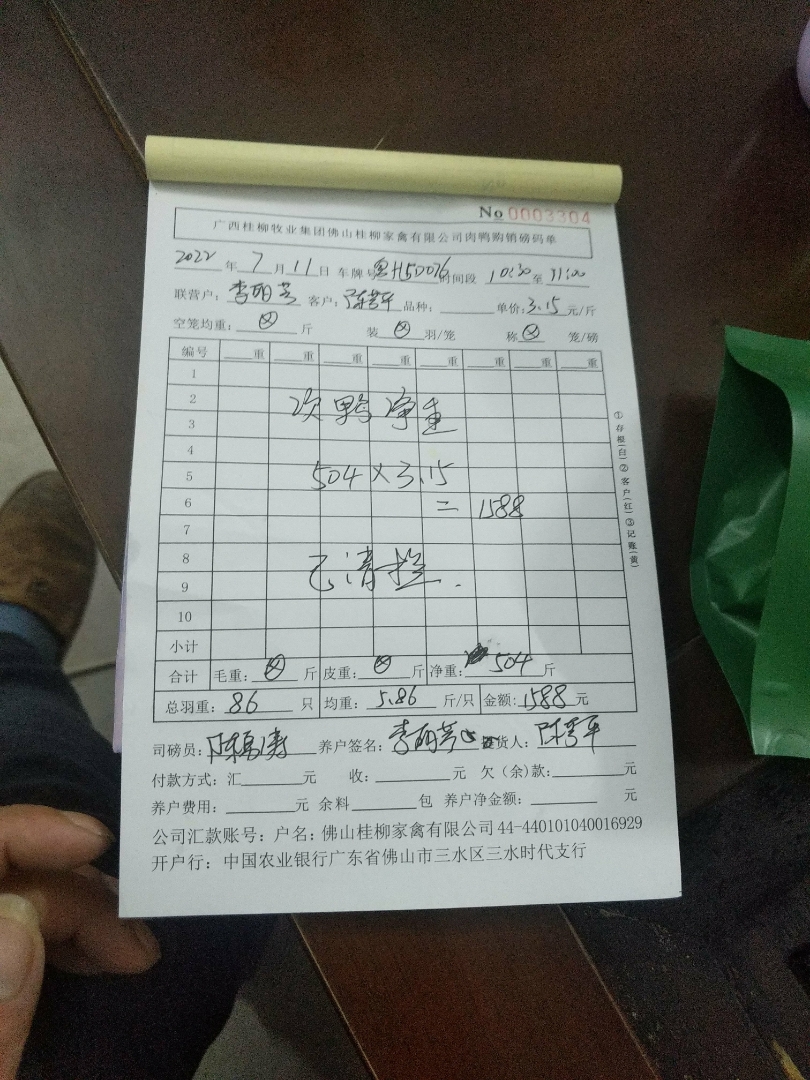 No 0003304
广西桂柳牧业集团佛山桂柳家禽有限公司肉鸭购销磅码单
2022年7月11日 车牌号 粤H50076 时间段 10:30至11:00
联营户: 李丽芳 客户: 陈芳平 品种: 单价:3.15元/斤
空笼均重: 斤 装 羽/笼 称 笼/磅
编号 重 重 重 重 重 重 重 重
1
2
次鸭净重
3
4
5
504×3.15
6
=1588
7
8
已清栏.
9
10
小计
合计 毛重: 斤 皮重: 斤 净重: 504斤
总羽重: 86只 均重: 5.86斤/只 金额:1588元
司磅员: 养户签名: 李丽芳 货人: 陈芳平
付款方式: 汇 元 收: 元 欠(余)款: 元
养户费用: 元 余料 包 养户净金额: 元
公司汇款账号: 户名: 佛山桂柳家禽有限公司 44-440101040016929
开户行: 中国农业银行广东省佛山市三水区三水时代支行
①存根(白)②客户(红)③记账(黄)